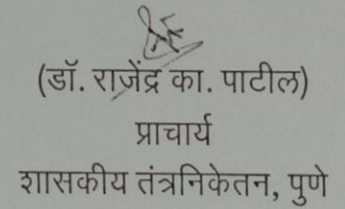 (डॉ. राजेंद्र का. पाटील)
प्राचार्य
शासकीय तंत्रनिकेतन, पुणे